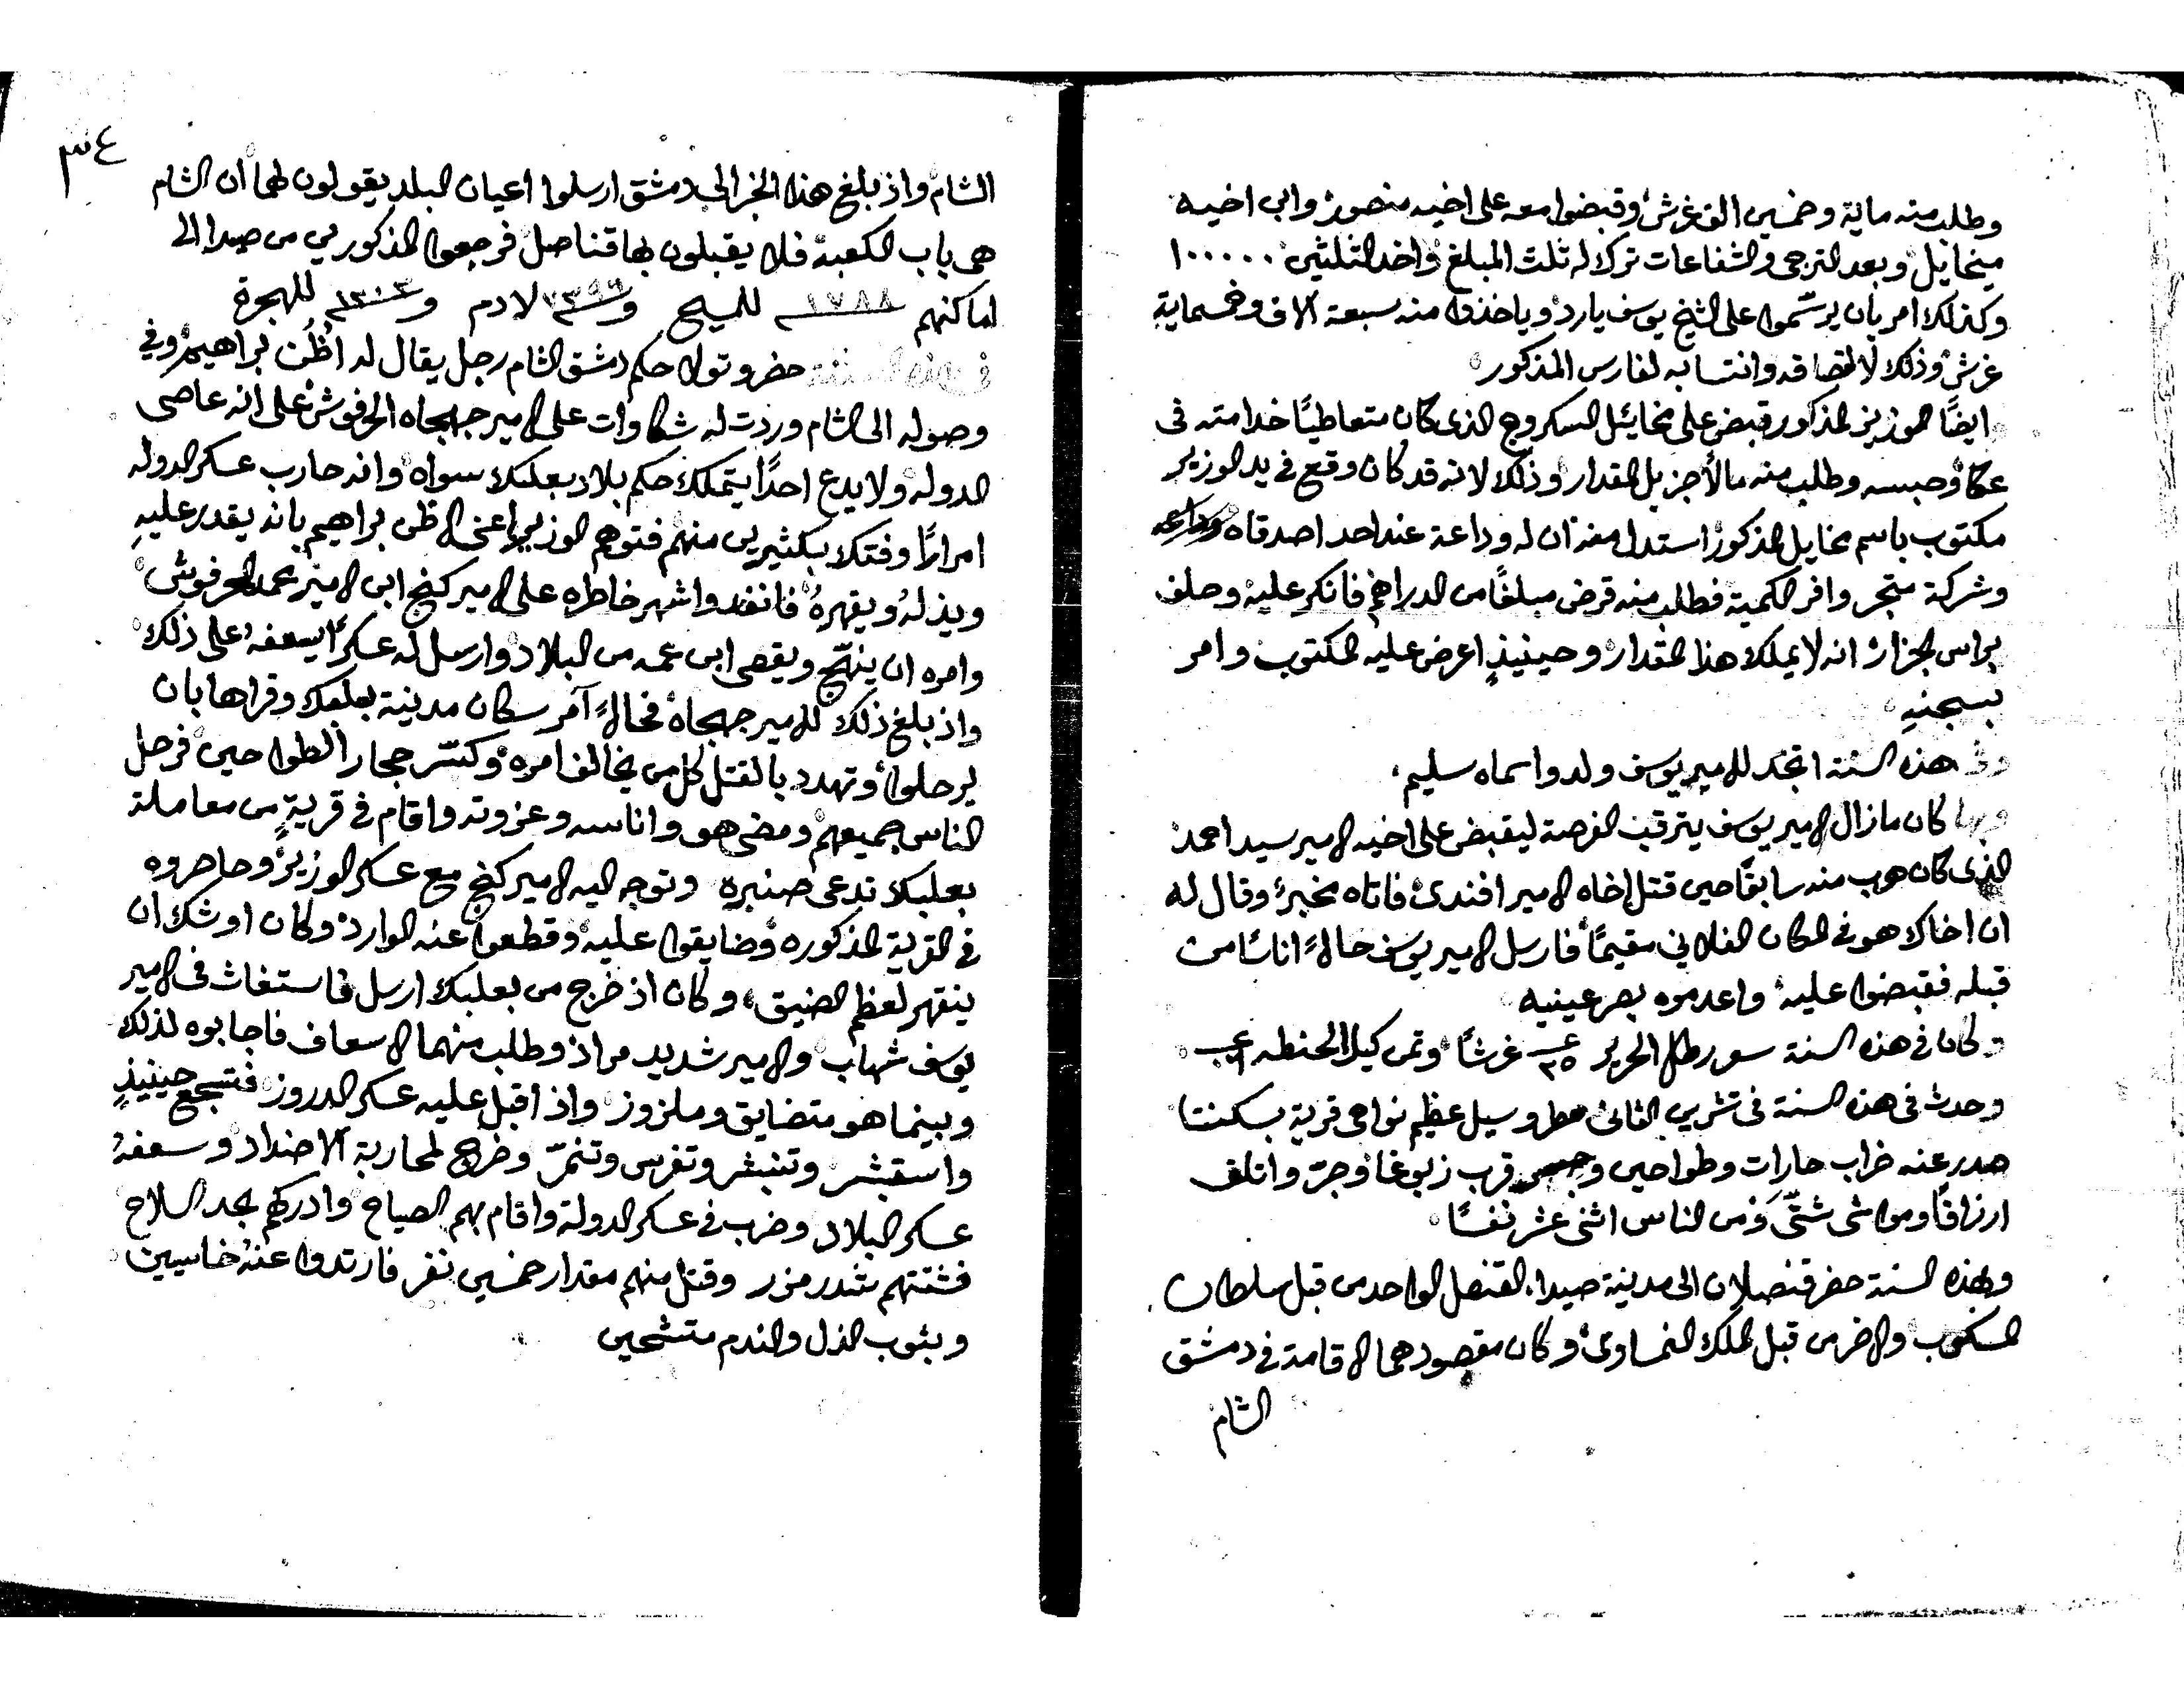 وطلب منه ماية وخمسين الف غرش وقبضوا معه على اخيه منصور وابن اخيه
ميخاييل وبعد الترجى والشفاعات ترك له ثلث المبلغ واخد الثلثين ١٠٠٠٠٠
وكذلك امر بان يرسّموا على الشيخ يوسف يارد وياخذوا منه سبعة الاف وخمسماية
غرش وذلك لالتصاقه وانتسابه لفارس المذكور
ايضًا الوزير المذكور قبض على مخائيل السكروج الذى كان متعاطيًا خدامته فى
عكا وحبسه وطلب منه مالًا جزيل المقدار وذلك لانه قد كان وقع فى يد الوزير
مكتوب باسم مخايل المذكور استدل منه ان له وداعة عند احد اصدقاه
وشركة متجر وافر الكمية فطلب منه قرض مبلغًا من الدراهم فانكر عليه وحلف
براس الجزار انه لا يملك هذا المقدار وحينيذٍ اعرض عليه المكتوب وامر
بسجنهِ
وفى هذه السنة اتجد للامير يوسف ولد واسماه سليم
وبها كان مازال الامير يوسف يترقب الفرصة ليقبض على اخيه الامير سيد احمد
الذى كان هرب منه سابقًا حين قتل اخاه الامير افندى فاتاه مخبرٌ وقال له
ان اخاك هو فى المكان الفلانى مقيمًا فارسل الامير يوسف حالًا اناسًا من
قبله فقبضوا عليه واعدموه بصر عينيه
وكان فى هذه السنة سعر رطل الحرير ٣٥ غرشًا وثمن كيل الحنطه
وحدث فى هذه السنة فى تشرين الثانى مطر وسيل عظيم نواحى قرية بسكنتا
صدر عنه خراب حارات وطواحين وجسر قرب زبوغا وجرّ واتلف
ارزاقًا ومواشى شتّى ومن الناس اثنى عشر نفسًا
وبهذه السنة حضر قنصلان الى مدينة صيدا القنصل الواحد من قبل سلطان
المسكوب والاخر من قبل الملك النمساوى وكان مقصودهما الاقامة فى دمشق
الشام
٣٤
الشام واذ بلغ هذا الخبر الى دمشق ارسلوا اعيان البلد يقولون لهما ان الشام
هى باب الكعبة فلا يقبلون بها قناصل فرجعوا المذكورين من صيدا الى
اماكنهم ١٧٨٨ للمسيح و لادم و ١٢٠٣ للهجرة
فى هذه السنة حضر وتولا حكم دمشق الشام رجل يقال له اظُن ابراهيم وفى
وصوله الى الشام وردت له شكاوات على الامير جهجاه الحرفوش على انه عاصى
الدوله ولا يدع احدًا يتملك حكم بلاد بعلبك سواه وانه حارب عسكر الدوله
امرارًا وفتك بكثيرين منهم فتوهم الوزير اعنى اظن ابراهيم بانه يقدر عليهِ
ويذلهُ ويقهرهُ فانفد واشهر خاطره على الامير كنج ابن الامير محمد الحرفوش
وامره ان ينهّج ويقصى ابن عمه من البلاد وارسل له عسكرًا يسعفه على ذلك
واذ بلغ ذلك للامير جهجاه فحالًا آمر سكان مدينة بعلبك وقراها بان
يرحلوا وتهدد بالقتل كل من يخالف امره وكسّر حجار الطواحين فرحل
الناس جميعهم ومضى هو واناسه وعزوته واقام فى قريةٍ من معاملة
بعلبك تدعى صنيره وتوجه اليه الامير كنج مع عسكر الوزير وحاصروه
فى القرية المذكوره وضايقوا عليه وقطعوا عنه الوارد وكان اوشك ان
ينقهر لعظم الضيق وكان اذ خرج من بعلبك ارسل فاستغاث فى الامير
يوسف شهاب والامير شديد مراد وطلب منهما الاسعاف فاجابوه لذلك
وبينما هو متضايق وملزوز واذ اقبل عليه عسكر الدروز فتشجع حينيذٍ
واستبشر وتنبشر وتفرس وتنمّر وخرج لمحاربة الاضداد وسعفهُ
عسكر البلاد وضرب فى عسكر الدولة واقام بهم الصياح وادركهم بحد السلاح
فشتتهم شدر مزر وقتل منهم مقدار خمسين نفر فارتدوا عنهُ خاسيين
وبثوب الذل والندم متشحين